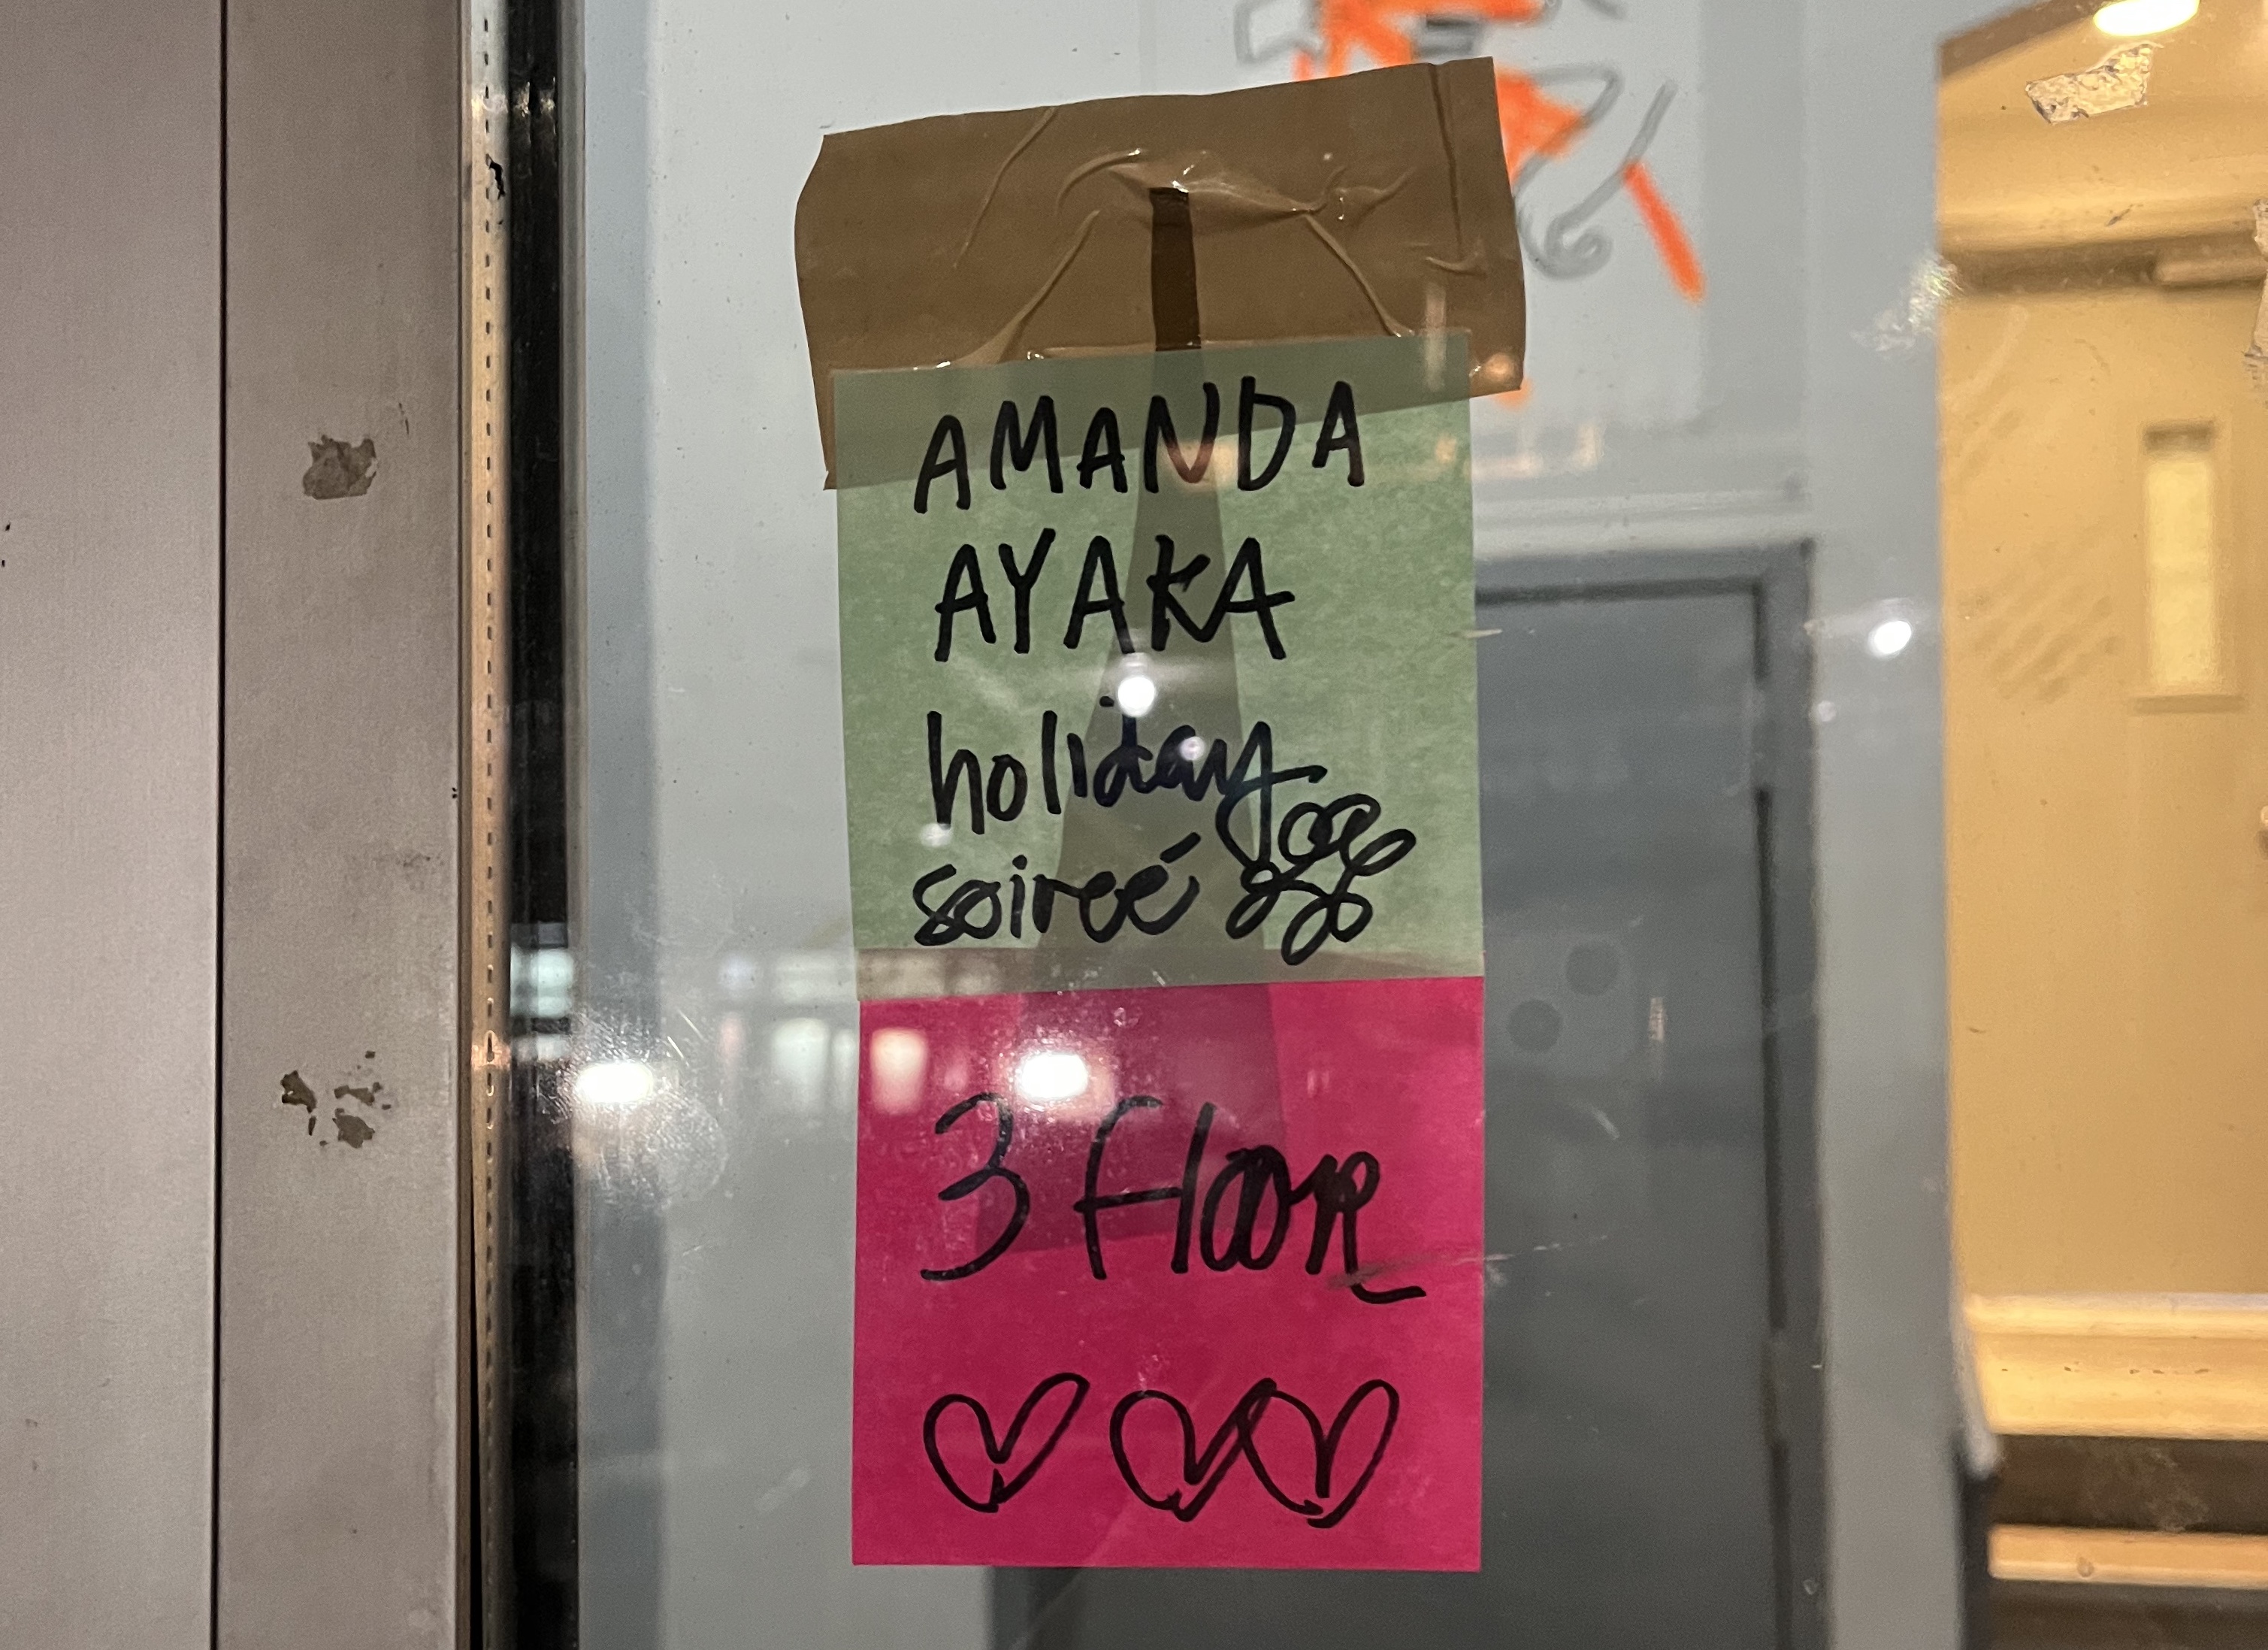 AMANDA
AYAKA
holiday
soireé
3 floor